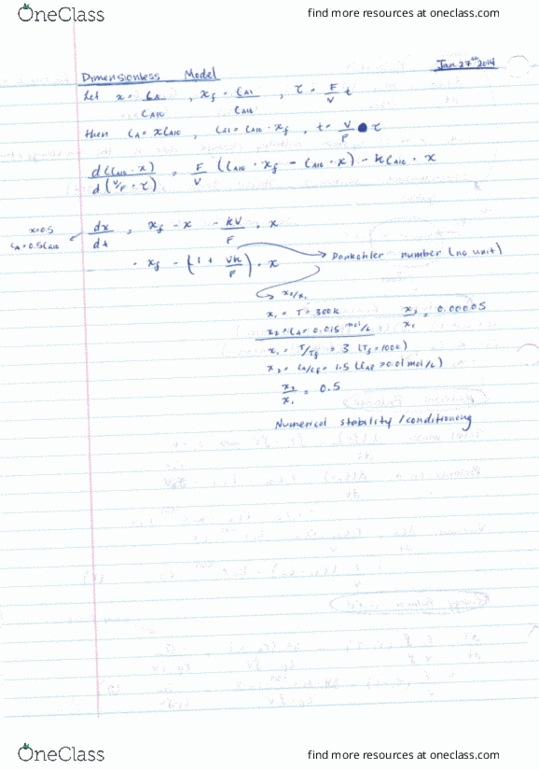 OneClass find more resources at oneclass.com
Jan. 27th 2014
Dimensionless Model
Let x = CA/CAi0 , xf = CAi/CAi0 , τ = F/V t
then CA = xCAi0 , CAi = CAi0 · xf , t = V/F · τ
d(CAi0 · x)/d(V/F · τ) = F/V (CAi0 · xf - CAi0 · x) - kCAi0 · x
x=0.5
CA=0.5CAi0
dx/dt = xf - x - kV/F · x
= xf - (1 + Vk/F) · x
Damkohler number (no unit)
x2/x1
x1 = T = 300k
x2/x1 = 0.00005
x2 = CA = 0.015 mol/L
x1 = T/Tf = 3 (Tf = 100k)
x2 = CA/Cf = 1.5 (CAf = 0.01 mol/L)
x2/x1 = 0.5
Numerical stability / conditioning
OneClass find more resources at oneclass.com